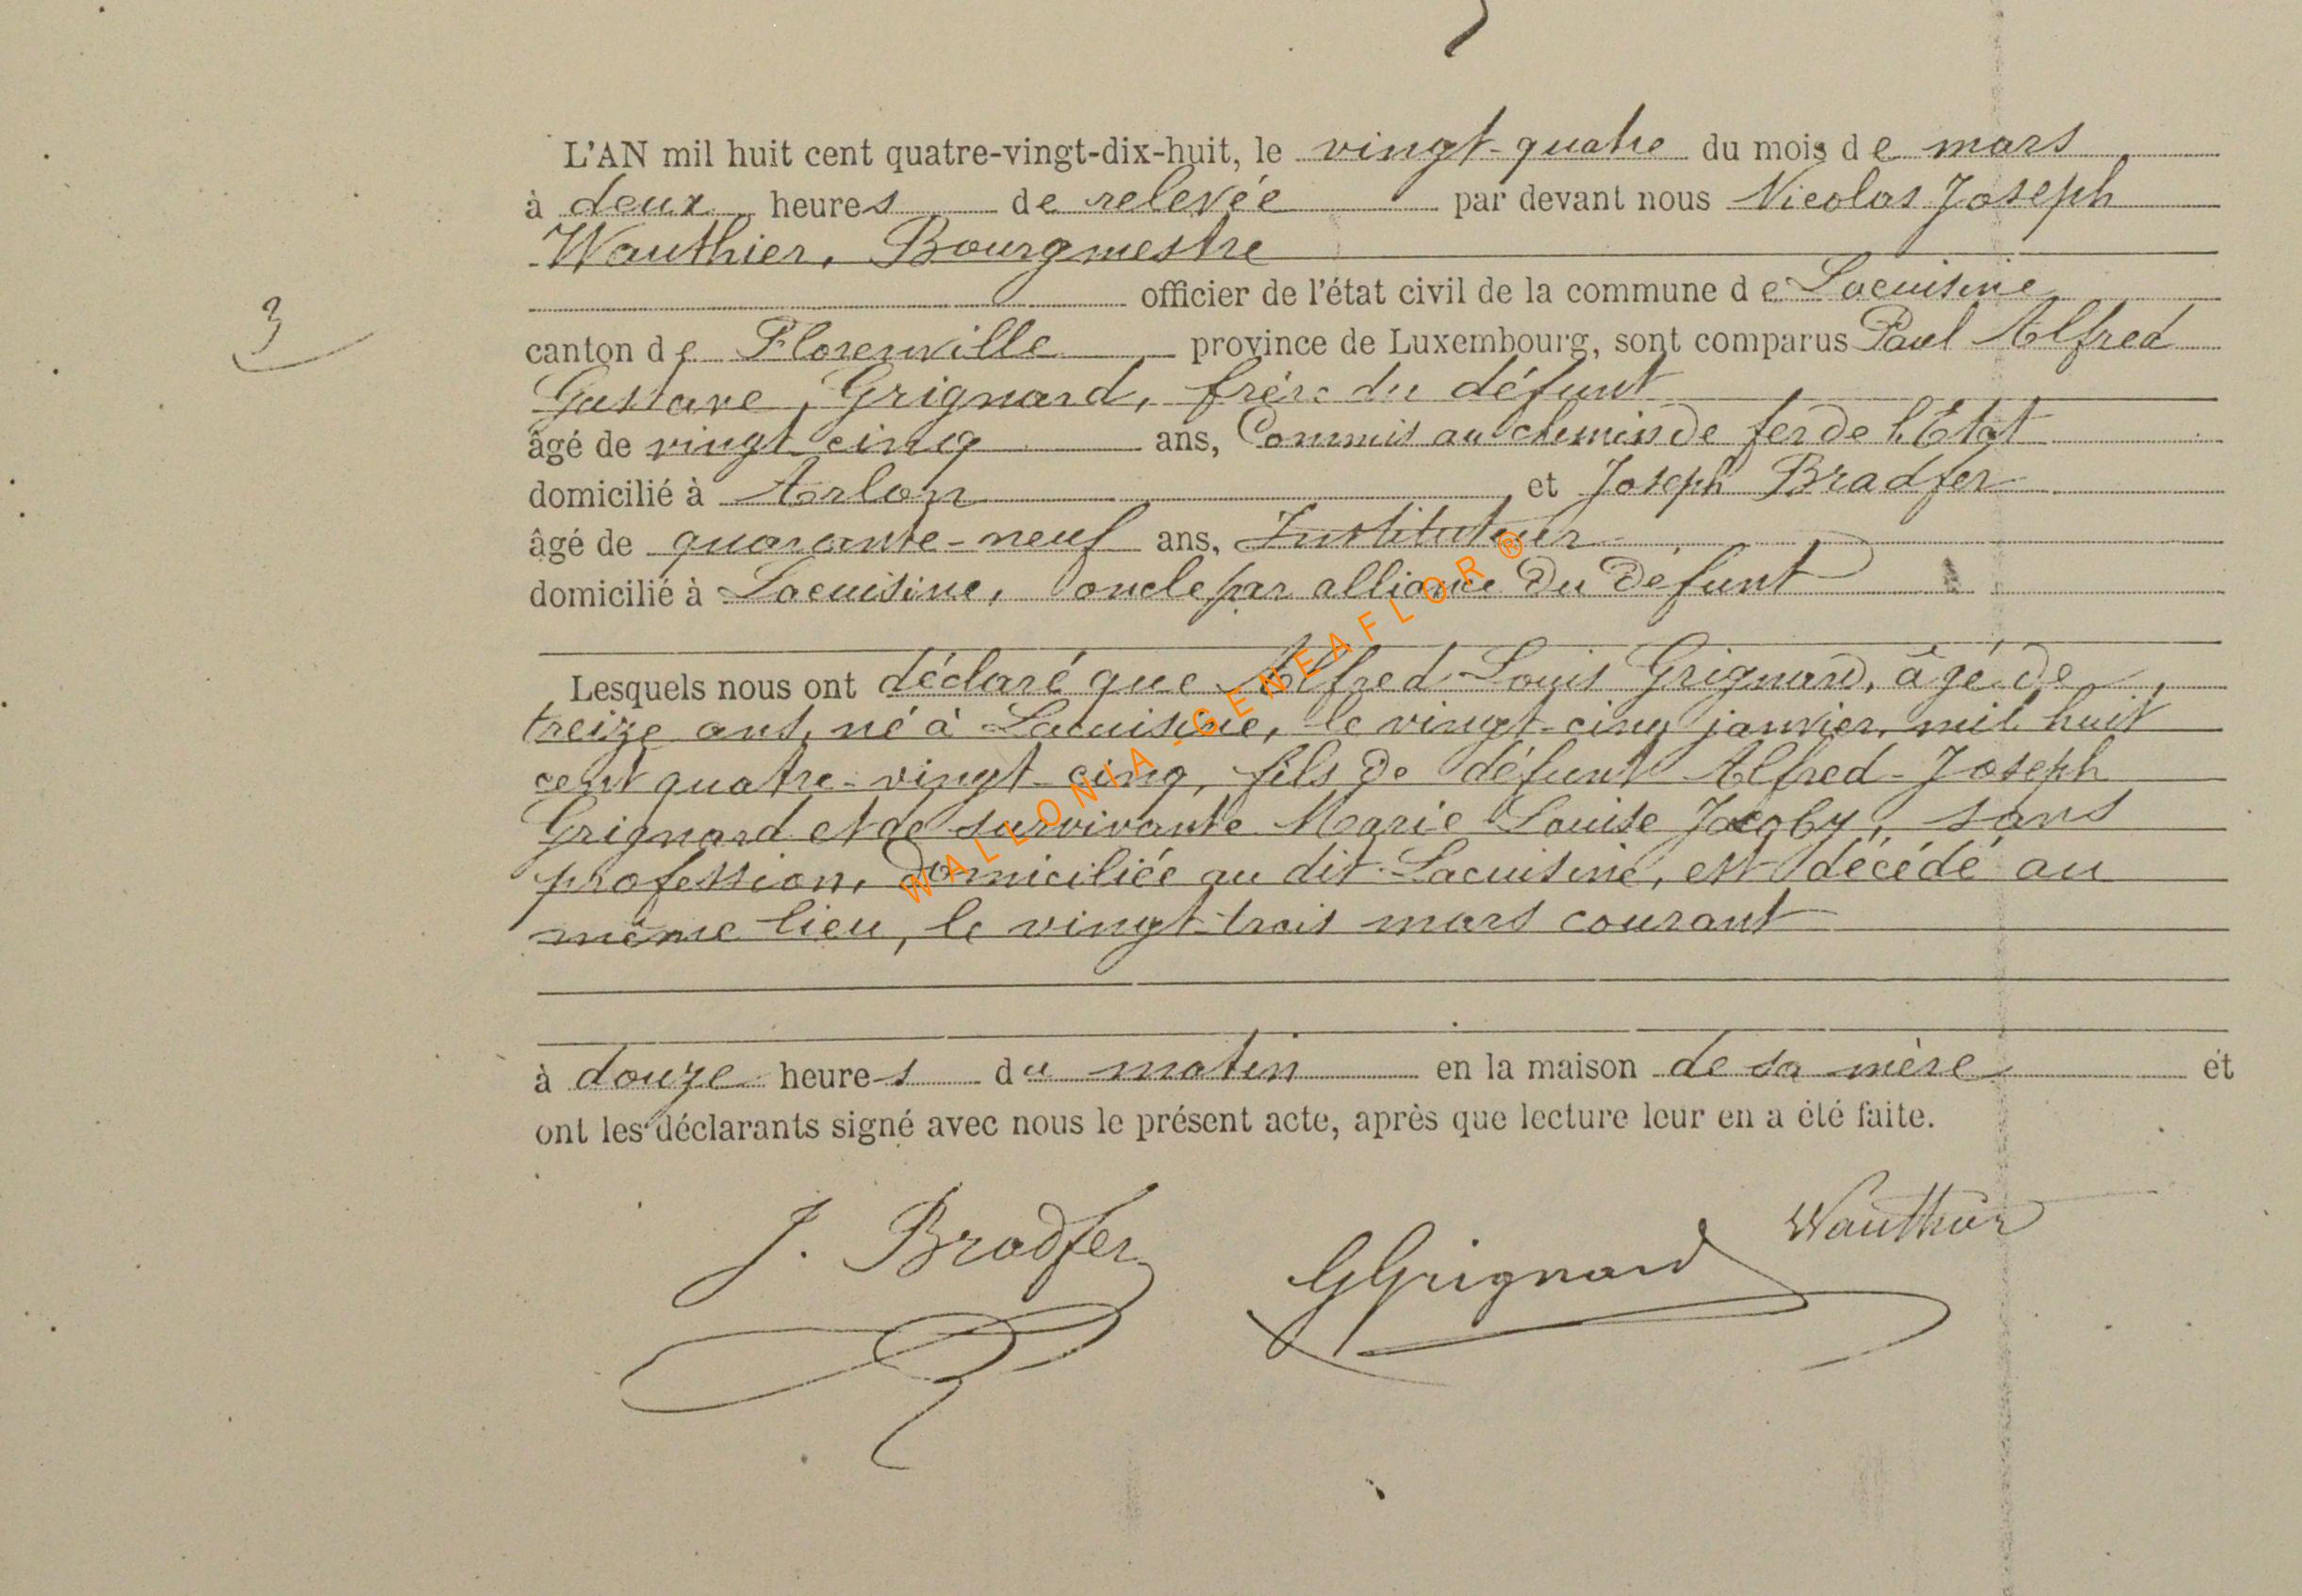 L'AN mil huit cent quatre-vingt-dix-huit, le vingt-quatre du mois de mars
à deux heures de relevée par devant nous Nicolas Joseph
Wauthier, Bourgmestre
officier de l'état civil de la commune de Lacuisine
3
canton de Florenville province de Luxembourg, sont comparus Paul Alfred
Gustave, Grignard, frère du défunt
âgé de vingt cinq ans, Commis au chemin de fer de l'Etat
domicilié à Arlon et Joseph Bradfer
âgé de quarante-neuf ans, Instituteur
domicilié à Lacuisine, oncle par alliance du défunt
Lesquels nous ont déclaré que Alfred Louis Grignard, âgé de
treize ans, né à Lacuisine, le vingt-cinq janvier, mil huit
cent quatre-vingt-cinq, fils de défunt Alfred-Joseph
Grignard et de survivante Marie Louise Jacoby, sans
profession, domiciliée au dit Lacuisine, est décédé au
même lieu, le vingt-trois mars courant
à douze heures du matin en la maison de sa mère et
ont les déclarants signé avec nous le présent acte, après que lecture leur en a été faite.
J. Bradfer GGrignard Wauthier
WALLONIA-GENEAFLOR ®